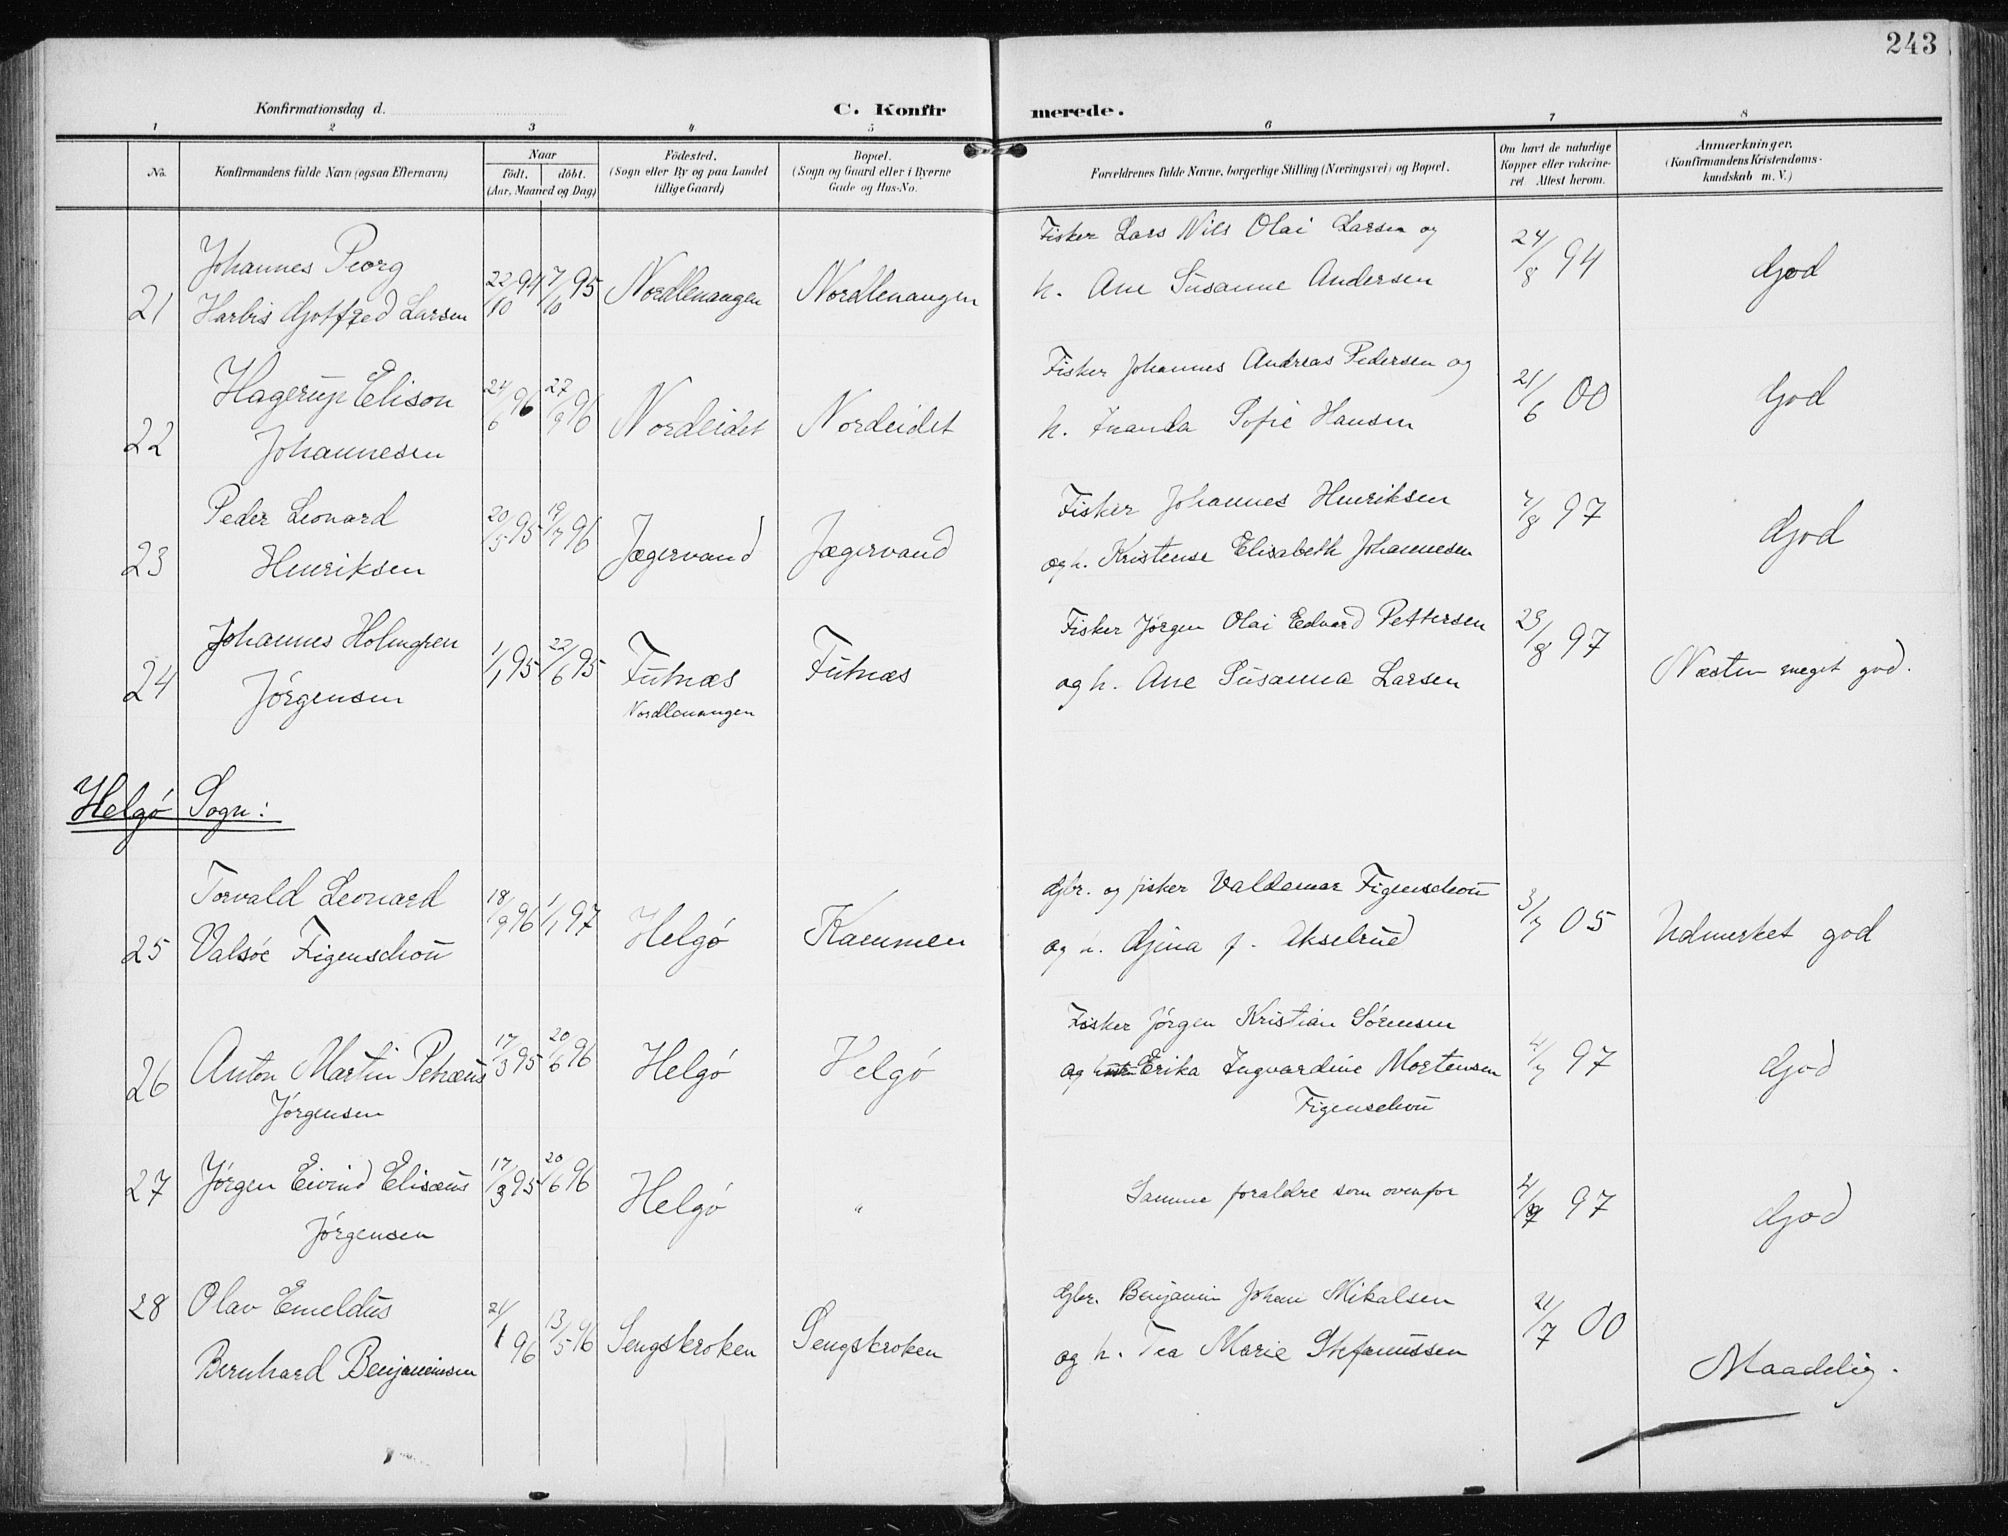 243
Konfirmationsdag d.
C. Konfirmerede.
1 2 3 4 5 6 7 8
No. Konfirmandens fulde Navn (ogsaa Efternavn) Naar födt. döbt. (Aar, Maaned og Dag) Födested. (Sogn eller By og paa Landet tillige Gaard) Bopæl. (Sogn og Gaard eller i Byerne Gade og Hus-No. Forældrenes fulde Navne, borgerlige Stilling (Næringsvei) og Bopæl. Om havt de naturlige Kopper eller vakcineret Attest herom. Anmærkninger. (Konfirmandens Kristendomskundskab m. V.)
Johannes Peorg Fisker Lars Nils Olai Larsen og
21 Harbis Gotfred Larsen 22/10 94 7/10 95 Nordlenangen Nordlenangen h. Ane Susanne Andersen 24/8 94 God
Hagerup Elison Fisker Johannes Andreas Pedersen og
22 Johannesen 24/6 96 27/9 96 Nordeidet Nordeidet h. Sofie Hansen 21/6 00 God
Peder Leonard Fisker Johannes Henriksen
23 Henriksen 20/5 95 19/7 96 Jægervand Jægervand og h. Kristense Elisabeth Johannesen 7/8 97 God
Johannes Holmgren Fisker Jørgen Olai Edvard Pettersen
24 Jørgensen 1/1 95 22/6 95 Futnæs Futnæs og h. Ane Susanna Larsen 23/8 97 Næsten meget god.
Nordlenangen
Helgø Sogn:
Torvald Leonard Gbr. og fisker Valdemar Figenschou
25 Valsøe Figenschou 18/9 96 1/1 97 Helgø Kammen og h. Gjina f. Akselrud 3/7 05 Udmerket god
Fisker Jørgen Kristian Sørensen
26 Anton Martin Petræus 17/3 95 20/6 96 Helgø Helgø og Erika Ingvardine Mortensen 4/7 97 God
Jørgensen Figenschou
27 Jørgen Eivind Elisæus 17/3 95 20/6 96 Helgø " Samme foraldre som ovenfor 4/7 97 God
Jørgensen
28 Olav Emeldus Gbr. Benjamin Johan Mikalsen
Bernhard Benjaminsen 24/1 96 13/5 96 Sengskroken Sengskroken og h. Tea Marie Stefanussen 21/7 00 Maadelig.